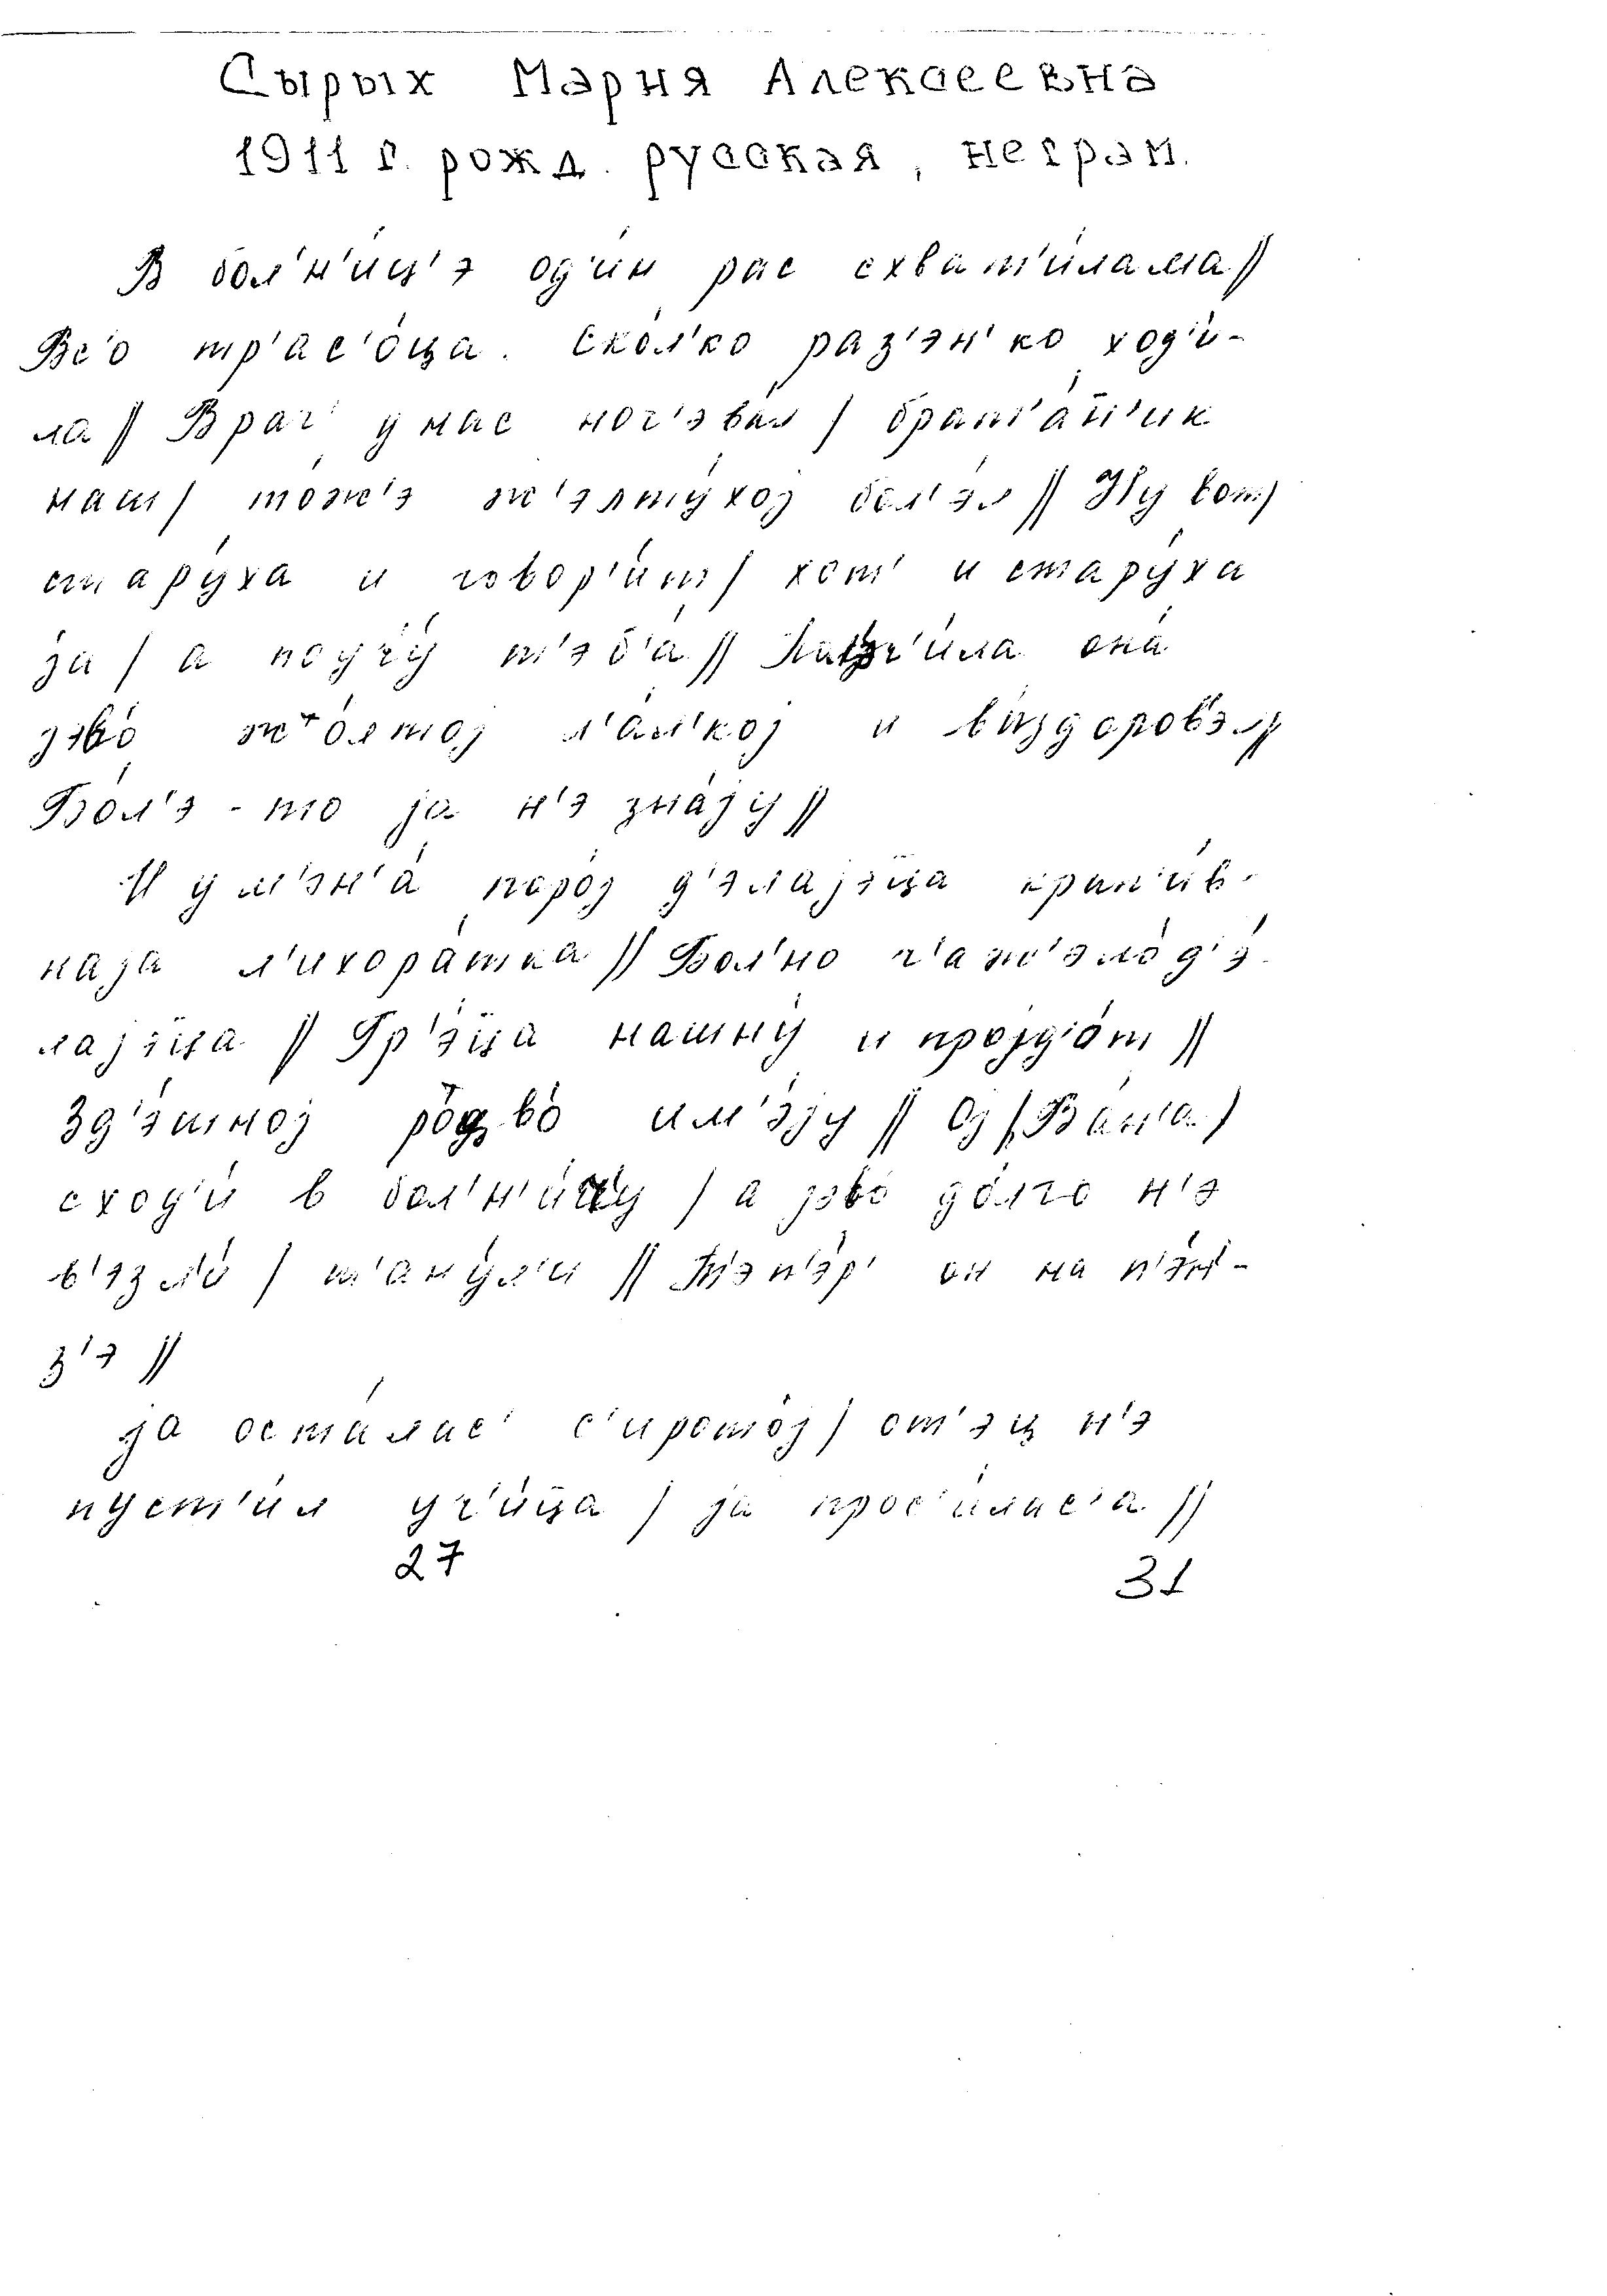 Сырых Мария Алексеевна
1911 г. рожд. русская, неграм.
В бол'н'иц'э од'ин рас схват'и́лама //
Вс'о тр'ас'о́ца. Ско́л'ко раз'эн'ко ход'и́-
ла // Врач у нас ноч'эва́л / брат'а́н'ик
наш / то́ж'э ж'элту́хоj бол'э́л // Ну вот /
стару́ха и говор'и́т / хот' и стару́ха
jа / а ноучу́ т'эб'а́ // она́
jэво́ ж'о́лтоj л'а́л'коj и
Бо́л'э - то jа н'э зна́jу //
И у м'эн'а́ поро́j д'э́лаjэца крап'и́в-
наjа л'ихора́тка // Бо́л'но ч'аж'эло́ д'э́-
лаjэца // Гр'э́ца начну́ и проjд'о́т //
Зд'э́шноj им'э́jу // Оj / Ва́н'а /
сход'и́ в / а jэво́ до́лго н'э
в'эзло́ / т'ану́л'и // Т'эп'э́р' он на п'э́н'-
з'э //
jа оста́лас' с'ирото́j / от'эц н'э
пуст'и́л уч'и́ца / jа прос'и́лас'а //
27
31